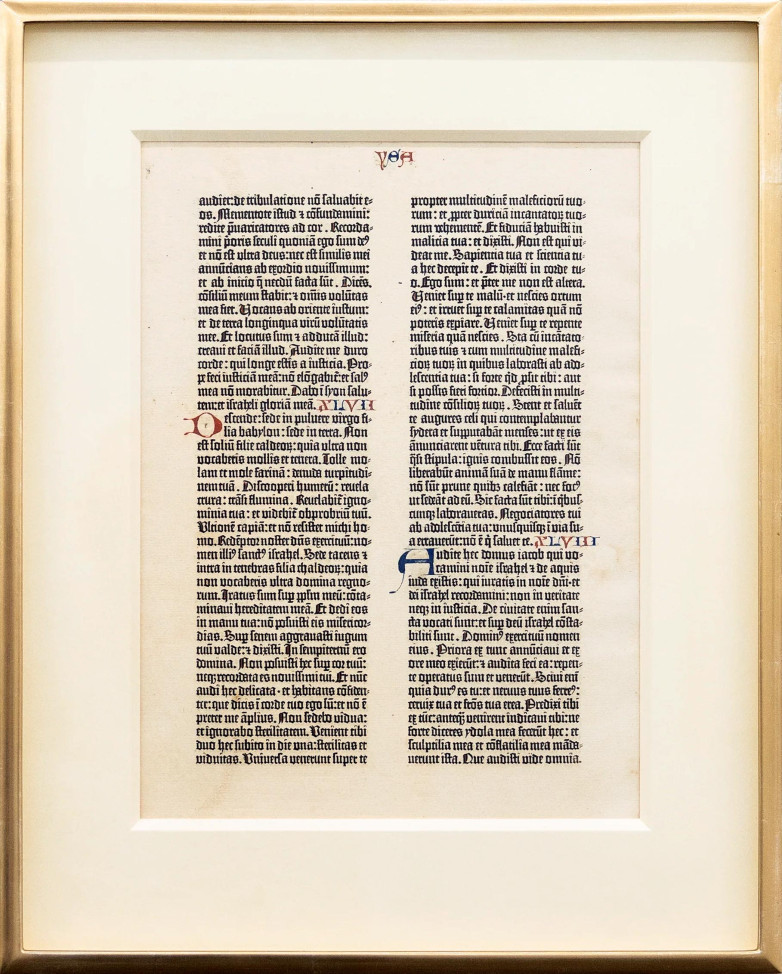 ysa
audiet: de tribulatione nō saluabit e⸗
os. Mementote istud ⁊ cōfundamini:
redite p̄uaricatores ad cor. Recorda⸗
mini p̄oris seculi quoniā ego sum deꝰ
et nō est ultra deus: nec est similis mei
annūcians ab exordio nouissimum:
et ab inicio q̄ necdū facta sūt. Dicēs.
cōsiliū meum stabit: ⁊ om̄is volūtas
mea fiet. Vocans ab oriente iustum:
et de terra longinqua virū volūtatis
mee. Et locutus sum ⁊ adducā illud:
creaui et faciā illud. Audite me duro
corde: qui longe estis a iusticia. Pro⸗
pe feci iusticiā meā: nō elōgabit̄: et salꝰ
mea nō morabitur. Dabo ī syon salu⸗
tem: et israheli gloriā meā. XLVII
Descende: sede in puluere virgo fi⸗
lia babylon: sede in terra. Non
est soliū filie caldeoꝝ: quia ultra non
vocaberis mollis et tenera. Tolle mo⸗
lam et mole farinā: denuda turpitudi⸗
nem tuā. Discooperi humerū: reuela
crura: trāsi flumina. Reuelabit̄ igno⸗
minia tua: et videbit̄ obprobriū tuū.
Ultionē capiā: et nō resistet michi ho⸗
mo. Redēptor noster dn̄s exercituū: no⸗
men illiꝰ sanctꝰ israhel. Sede tacens ⁊
intra in tenebras filia chaldeoꝝ: quia
non vocaberis ultra domina regno⸗
rum. Iratus sum sup pp̄lm meū: cōta⸗
minaui hereditatem meā. Et dedi eos
in manu tua: nō posuisti eis misericor⸗
dias. Sup senem aggrauasti iugum
tuū valde: ⁊ dixisti. In sempiternū ero
domina. Non posuisti hec sup cor tuū:
neqꝫ recordata es nouissimi tui. Et nūc
audi hec delicata · et habitans cōfiden⸗
ter: que dicis ī corde tuo ego sū: et nō ē
preter me āplius. Non sedebo vidua:
et ignorabo sterilitatem. Venient tibi
duo hec subito in die una: sterilitas et
viduitas. Uniuersa venerunt super te
propter multitudinē maleficiorū tuo⸗
rum: et p̄pter duriciā incantatoꝝ tuo⸗
rum vehementē. Et fiduciā habuisti in
malicia tua: et dixisti. Non est qui vi⸗
deat me. Sapientia tua et scientia tu⸗
a hec decepit te. Et dixisti in corde tu⸗
o. Ego sum: et p̄ter me non est altera.
Veniet sup te malū · et nescies ortum
eiꝰ: et irruet sup te calamitas quā nō
poteris expiare. Veniet sup te repente
miseria quā nescies. Sta cū incātato⸗
ribus tuis ⁊ cum multitudine malefi⸗
cioꝝ tuoꝝ in quibus laborasti ab ado⸗
lescentia tua: si forte qd̄ ꝓsit tibi: aut
si possis fieri fortior. Defecisti in multi⸗
tudine cōsilioꝝ tuoꝝ. Stent et saluēt
te augures celi qui contemplabantur
sydera et supputabāt menses: ut ex eis
ānunciarent vētura tibi. Ecce facti sūt
q̄si stipula: ignis combussit eos. Nō
liberabūt animā suā de manu flāme:
nō sūt prune quibꝫ calefiāt: nec focꝰ
ut sedeāt ad eū. Sic facta sūt tibi: ī q̄bus⸗
cunqꝫ laboraueras. Negociatores tui
ab adolescētia tua: unusquisqꝫ ī via su⸗
a errauerūt: nō ē q̄ saluet te. XLVIII
Audite hec domus iacob qui vo⸗
camini noīe israhel ⁊ de aquis
iuda existis: qui iuratis in noīe dn̄i · et
dei israhel recordamini: non in veritate
neqꝫ in iusticia. De ciuitate enim san⸗
cta vocati sunt: et sup deū israhel cōsta⸗
biliti sunt. Dominꝰ exercituū nomen
eius. Priora ex tunc annūciaui et ex
ore meo exierūt: ⁊ audita feci ea: repen⸗
te operatus sum et venerūt. Sciui enī
quia durꝰ es tu: et neruus tuus ferreꝰ:
ceruix tua et frōs tua erea. Predixi tibi
ex tūc: anteq̄ venirent indicaui tibi: ne
forte diceres ydola mea fecerūt hec: et
sculptilia mea et cōflatilia mea māda⸗
uerunt ista. Que audisti vide omnia.